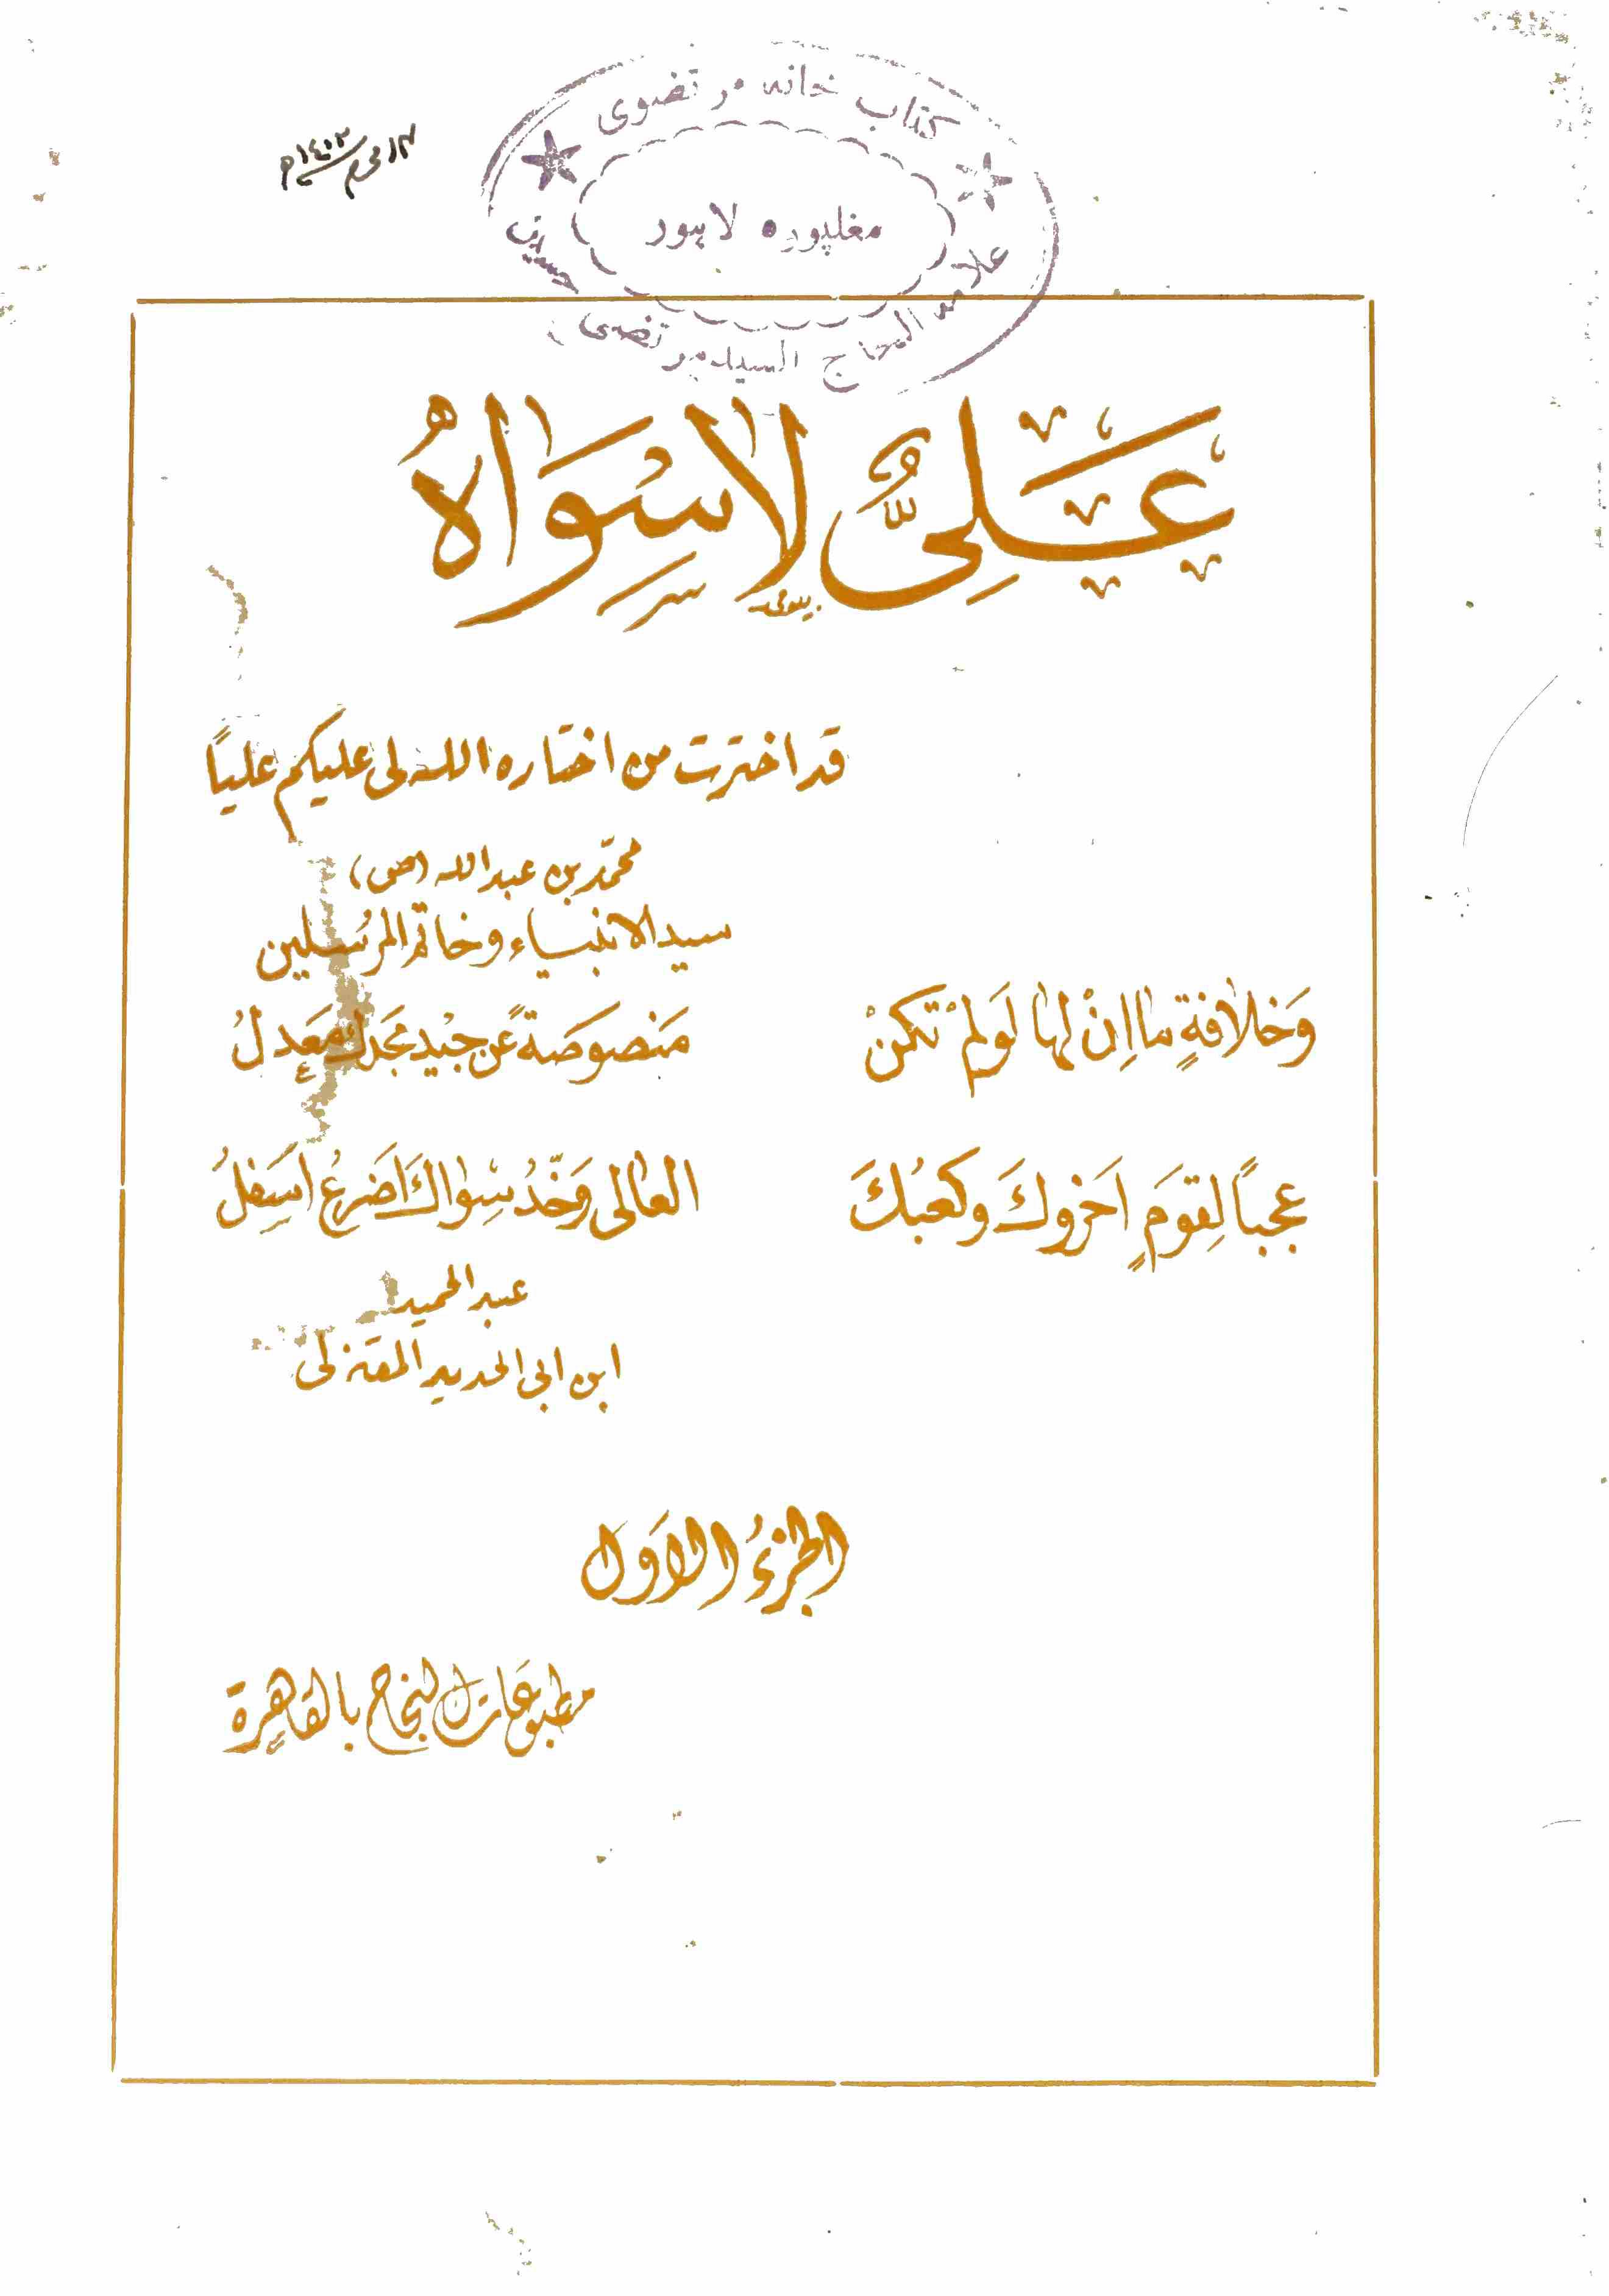 كتاب خانه مرتضوى
مغلپوره لاہور
۱۳ محرم ۱۴۰۳
عَلِيٌّ لَاسِوَاهُ
قد اخترت من اختاره الله لى عليكم علياً
محمّد بن عبد الله (ص)
سيد الانبياء وخاتم المرسلين
وَخلافةٍ ما اِنْ لها لَو لمْ تكنْ
مَنصوصَة عَن جيْد مجدك مَعدِلُ
عجباً لِقومٍ اَخروك وكعبُكَ
العالى وَخّدُ سِواك اَضرعُ اَسفلُ
عبد الحميد
ابن ابى الحديد المعتزلى
الجزءُ الاوَل
مطبوعَات النجاح بالقاهِرة